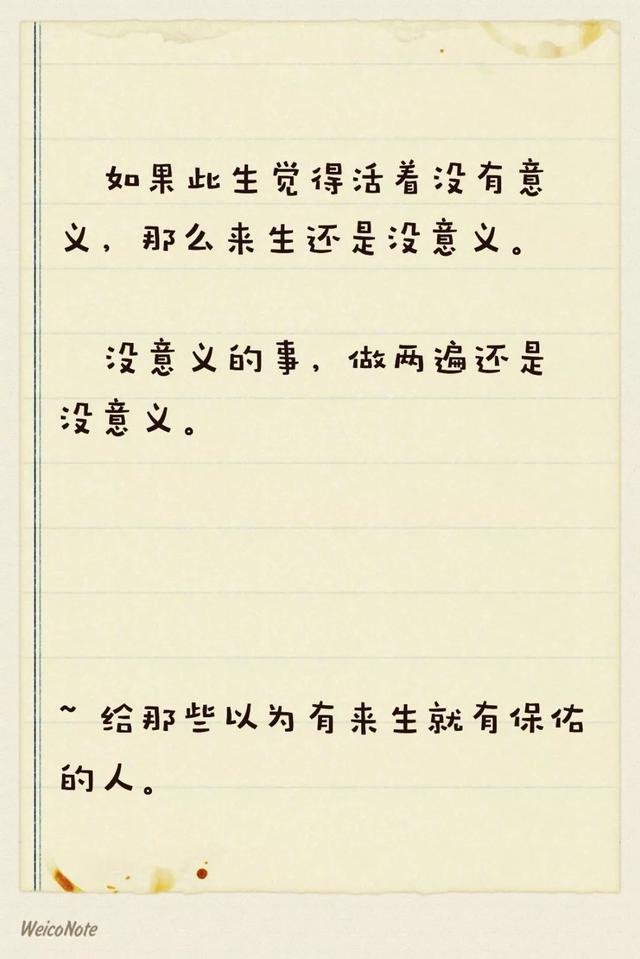 如果此生觉得活着没有意
义，那么来生还是没意义。
没意义的事，做两遍还是
没意义。
~ 给那些以为有来生就有保佑
的人。
WeicoNote